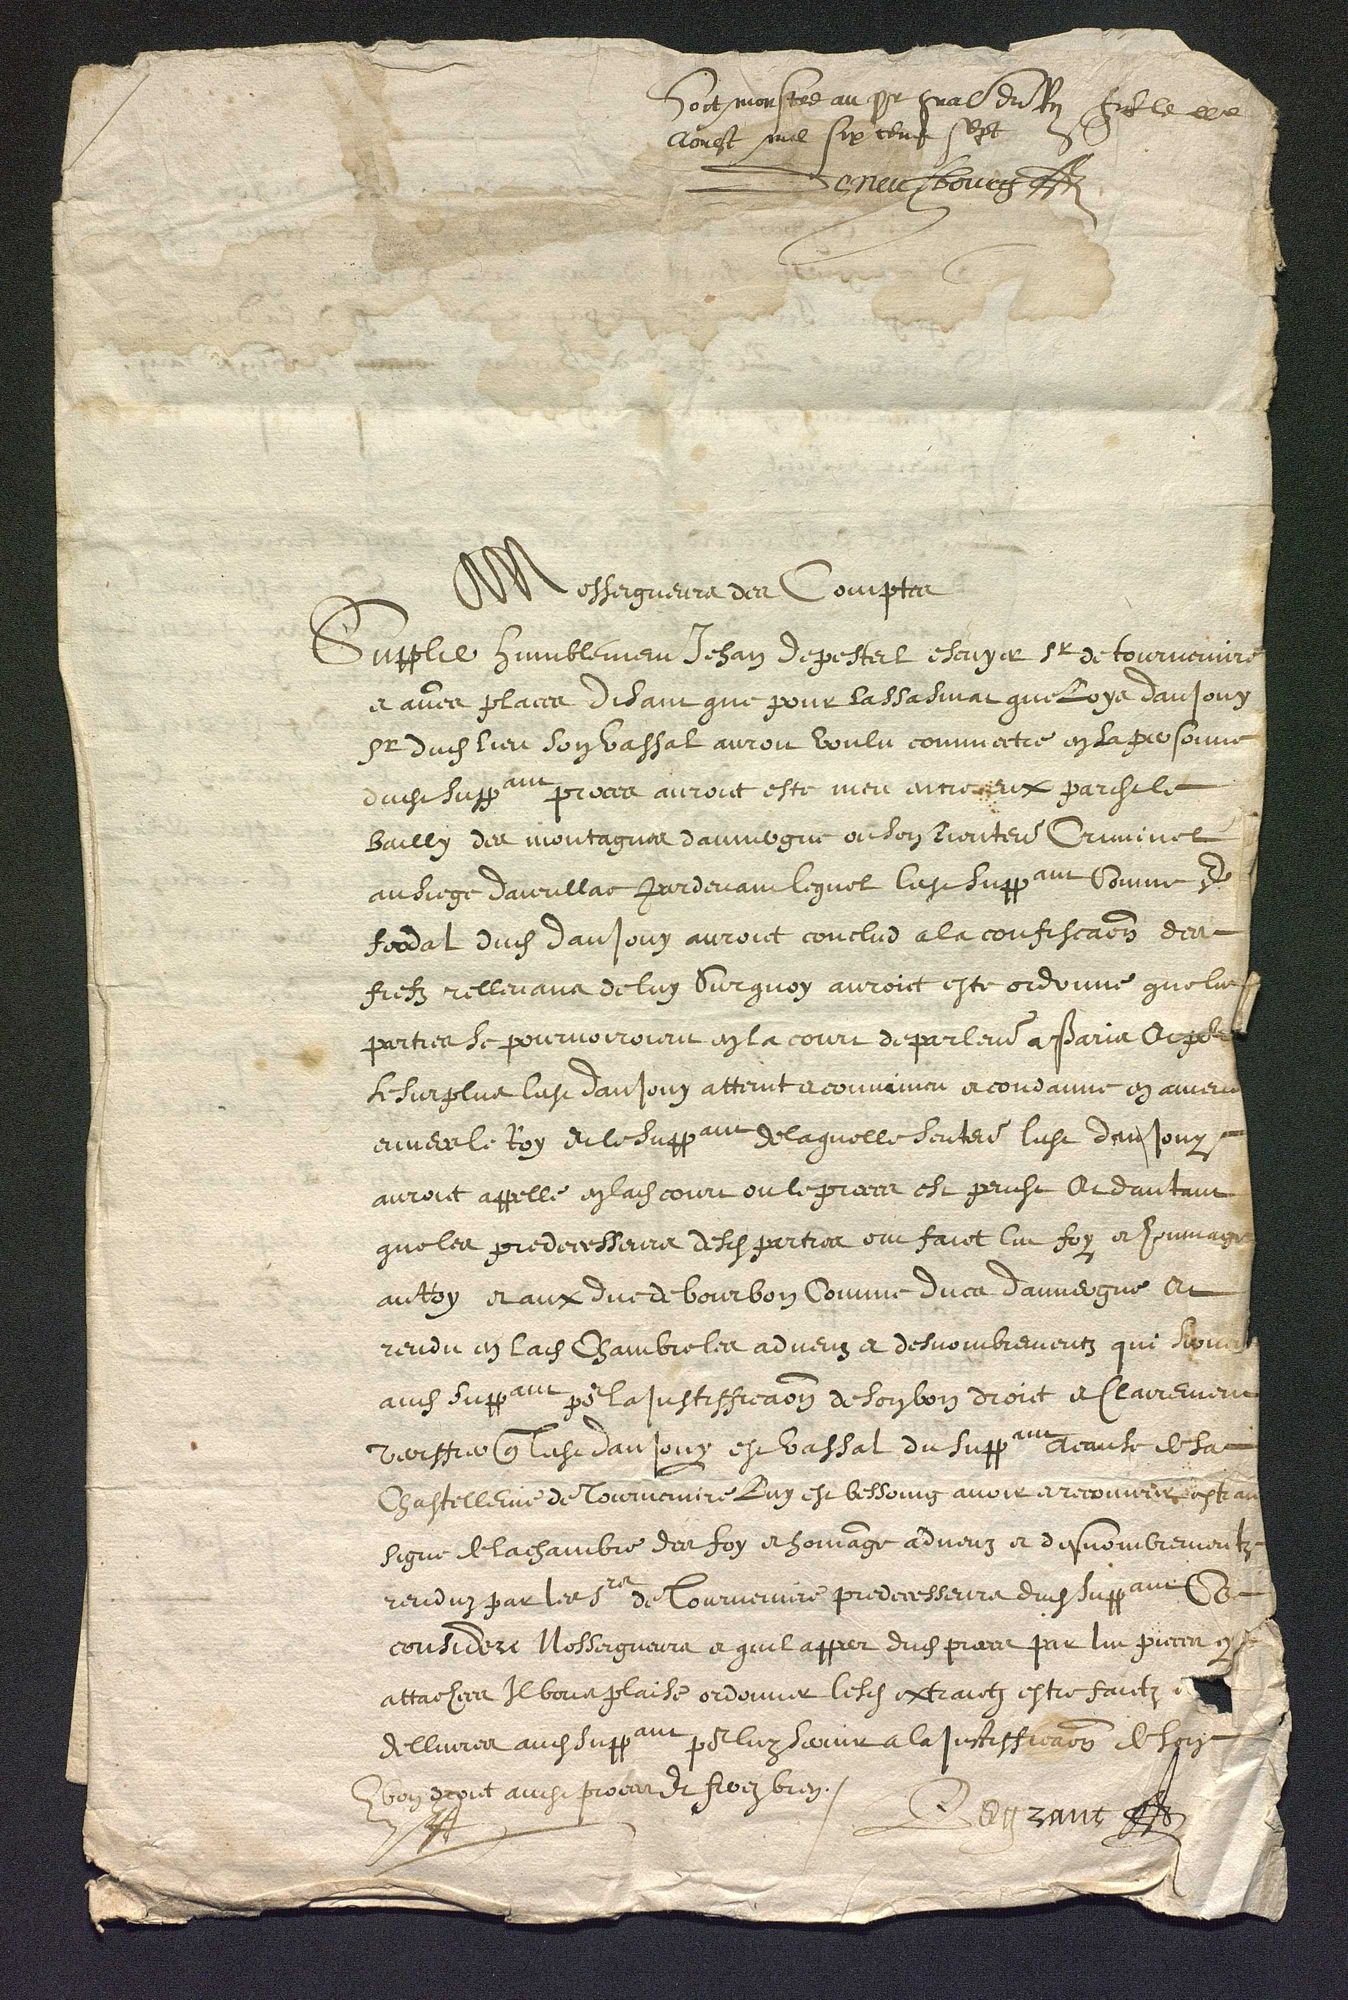 Soit monstré au pr gnal du Roy faict le xxe
Aoust mil six cens sept
Messeigneurs des Comptes
Supplie humblement Jehan de pesteil escuyer sr de tournemire
et aures places disant que pour lassasinat que Loys danjony
sr dud lieu son vassal auroit voulu commectre en la personne
dud suppant proces auroict esté meu entre eux pard le
bailly des montagnes dauvergne ou son lieuten Criminel
au siege daurillac pardevant lequel led suppant Comme sr
feodal dud danjony auroict conclud a la confiscaon des
fiefz rellevans de luy Surquoy auroict esté ordonné que les
parties se pourvoiroient en la court de parlent a Paris Et pour
le surplus led danjony atteint et convaincu et condamné en amende
envers le Roy et le suppant de laquelle senten led danjony
auroict appellé en lad court ou le proces est pend Et dautant
que les predecesseurs desd parties ont faict leur foy et hommage
au Roy et aux duc de bourbon Comme ducs dauvergne et
rendu en lad Chambre les adveuz et desnombrementz qui servent
aud suppant pr la justifficaon de son bon droict et Clairement
veriffier q led danjony est vassal du suppant a cause de sa
Chastellenie de Tournemire Luy est bessoing avoir et recouvrer extraict
signé de la chambre des foy et homage adveuz et desnombrementz
renduz par les srs de Tournemire predecesseurs dud suppant Ce
consideré Nosseigneurs et quil apper dud proces par les pieces cy
attachees Il vous plaise ordonner lesd extraictz estre faictz et
dellivrés aud suppant pr luy servir a la justifficaon de son
bon droict aud proces Et ferez bien